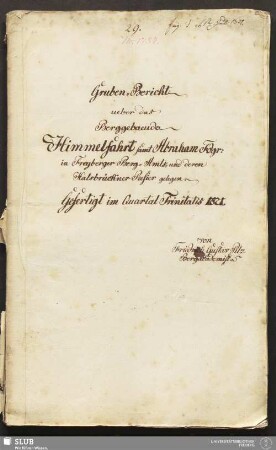 29.
Gruben-Bericht
ueber das
Berggebaeude
Himmelfahrt samt Abraham Fdgr:
in Freyberger Berg-Amte, und deren
Halsbrückner Refier gelegen
Gefertigt im Quartal Trinitatis 1821.
von
Friedrich Gustav
Bergakademist.
SLUB
Wir führen Wissen.